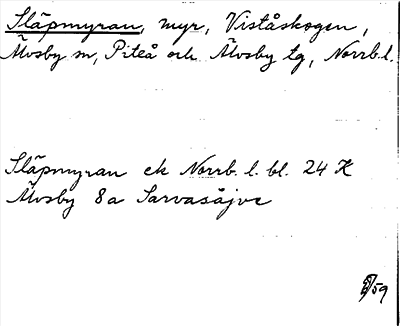 Släpmyran, myr, Viståskogen,
Älvsby sn, Piteå och Älvsby tg, Norrb. l.
Släpmyran ek Norrb. l. bl. 24 K
Älvsby 8a Sarvasåjve
59